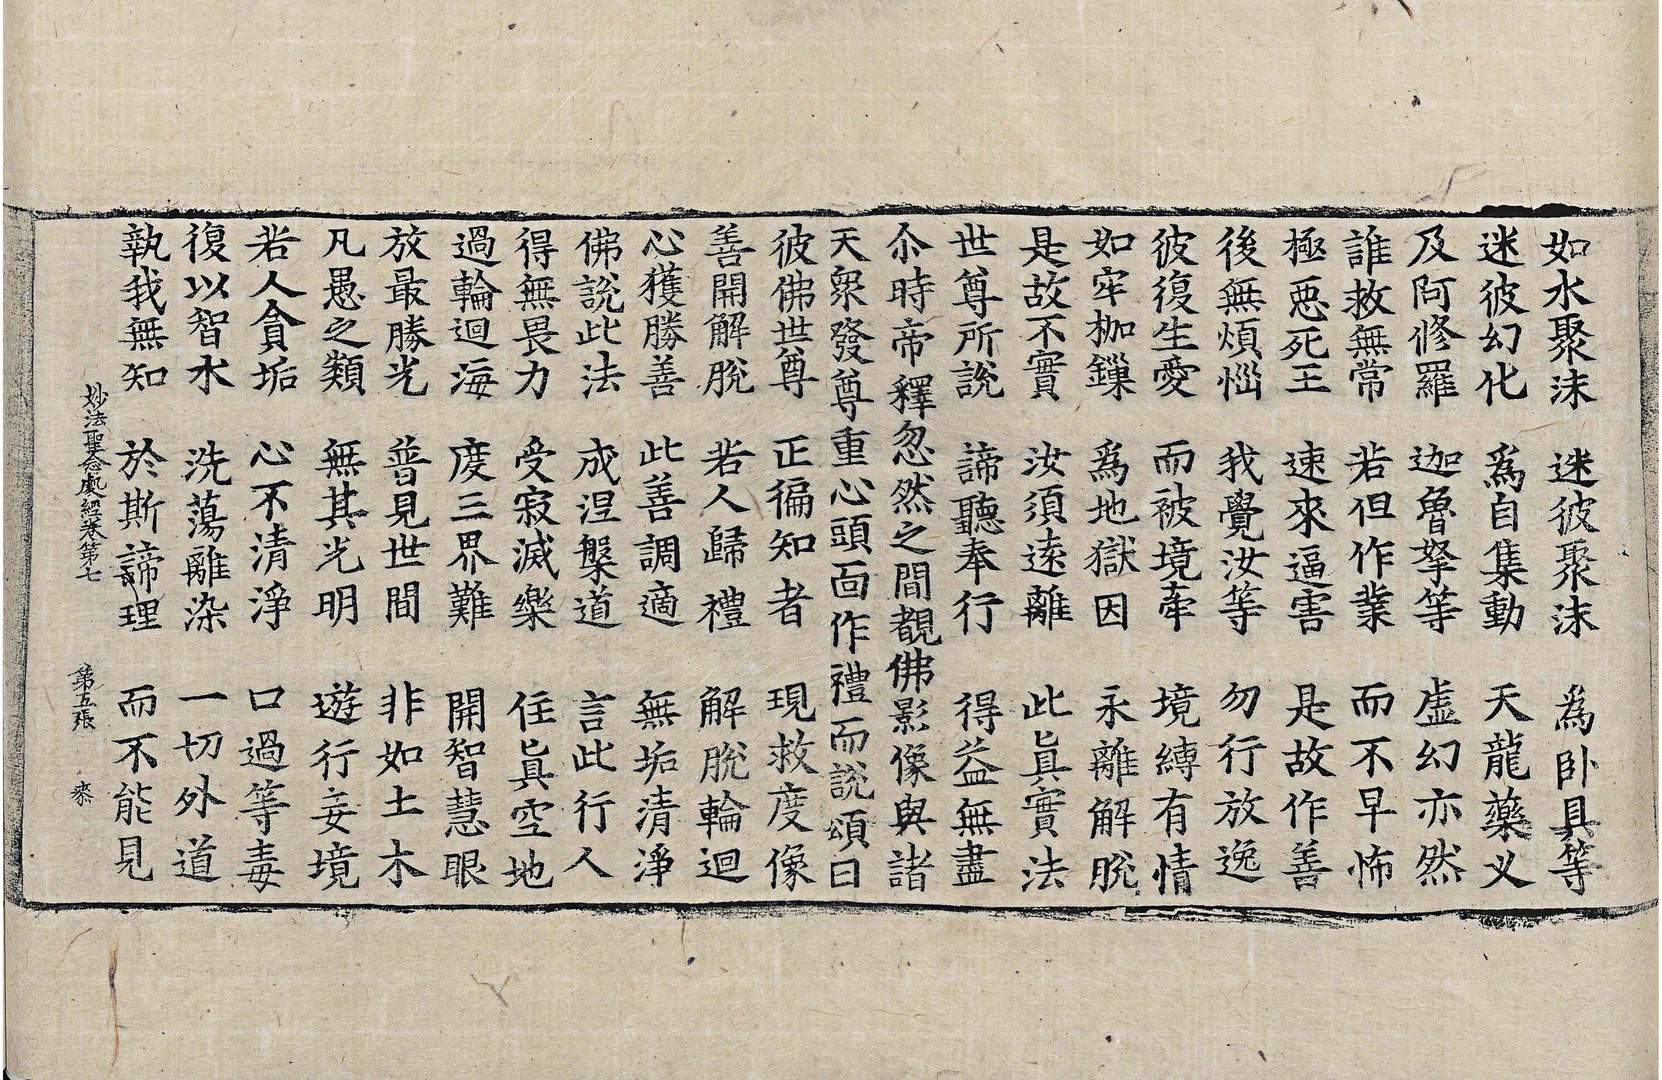 如水聚沫 迷彼聚沫 為卧具等
迷彼幻化 為自集動 天龍藥义
及阿修羅 迦魯拏等 虛幻亦然
誰救無常 若但作業 而不早怖
極惡死王 速來逼害 是故作善
後無煩惱 我覺汝等 勿行放逸
彼復生愛 而被境牽 境縛有情
如牢枷鏁 為地獄因 永離解脫
是故不實 汝須遠離 此真實法
世尊所說 諦聽奉行 得益無盡
尒時帝釋忽然之間覩佛影像與諸
天衆發尊重心頭面作禮而說頌曰
彼佛世尊 正徧知者 現救度像
善開解脫 若人歸禮 解脫輪迴
心獲勝善 此善調適 無垢清淨
佛說此法 成涅槃道 言此行人
得無畏力 受寂滅樂 住真空地
過輪迴海 度三界難 開智慧眼
放最勝光 普見世間 非如土木
凡愚之類 無其光明 遊行妄境
若人貪垢 心不清淨 口過等毒
復以智水 洗蕩離染 一切外道
執我無知 於斯諦理 而不能見
妙法聖念處經卷第七 第五張